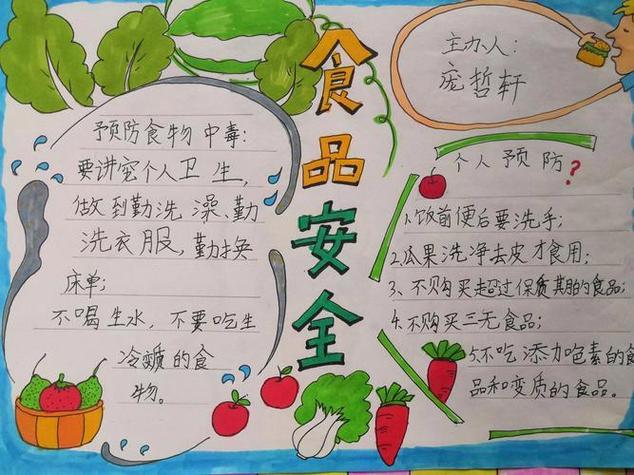 食品安全
主办人：
庞哲轩
预防食物中毒：
要讲究个人卫生，
做到勤洗澡、勤
洗衣服，勤换
床单；
不喝生水，不要吃生
冷变质的食
物。
个人预防？
1、饭前便后要洗手；
2、瓜果洗净去皮才食用；
3、不购买超过保质期的食品；
4、不购买三无食品；
5、不吃添加色素的食
品和变质的食品。